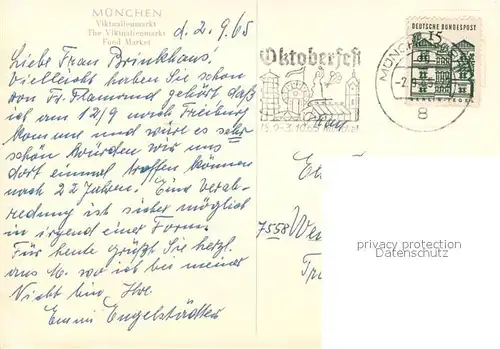 MÜNCHEN
Viktualienmarkt
The Viktualienmarkt
Food Market
d. 2.9.65
Liebe Frau Brinkhaus!
Vielleicht haben Sie schon
von Fr. Flamund gehört daß
ich am 12/9 nach Freiburg
komme und würde es sehr
schön würden wir uns
dort einmal treffen können
nach 22 Jahren. Eine Verab-
redung ist sicher möglich
in irgend einer Form.
Für heute grüßt Sie herzl.
aus M. wo ich bei meiner
Nicht bin, Ihre
Emmi Engelstädter
Oktoberfest
DEUTSCHE BUNDESPOST
15
MÜNCHEN
8
Frau
7558
privacy protection
Datenschutz